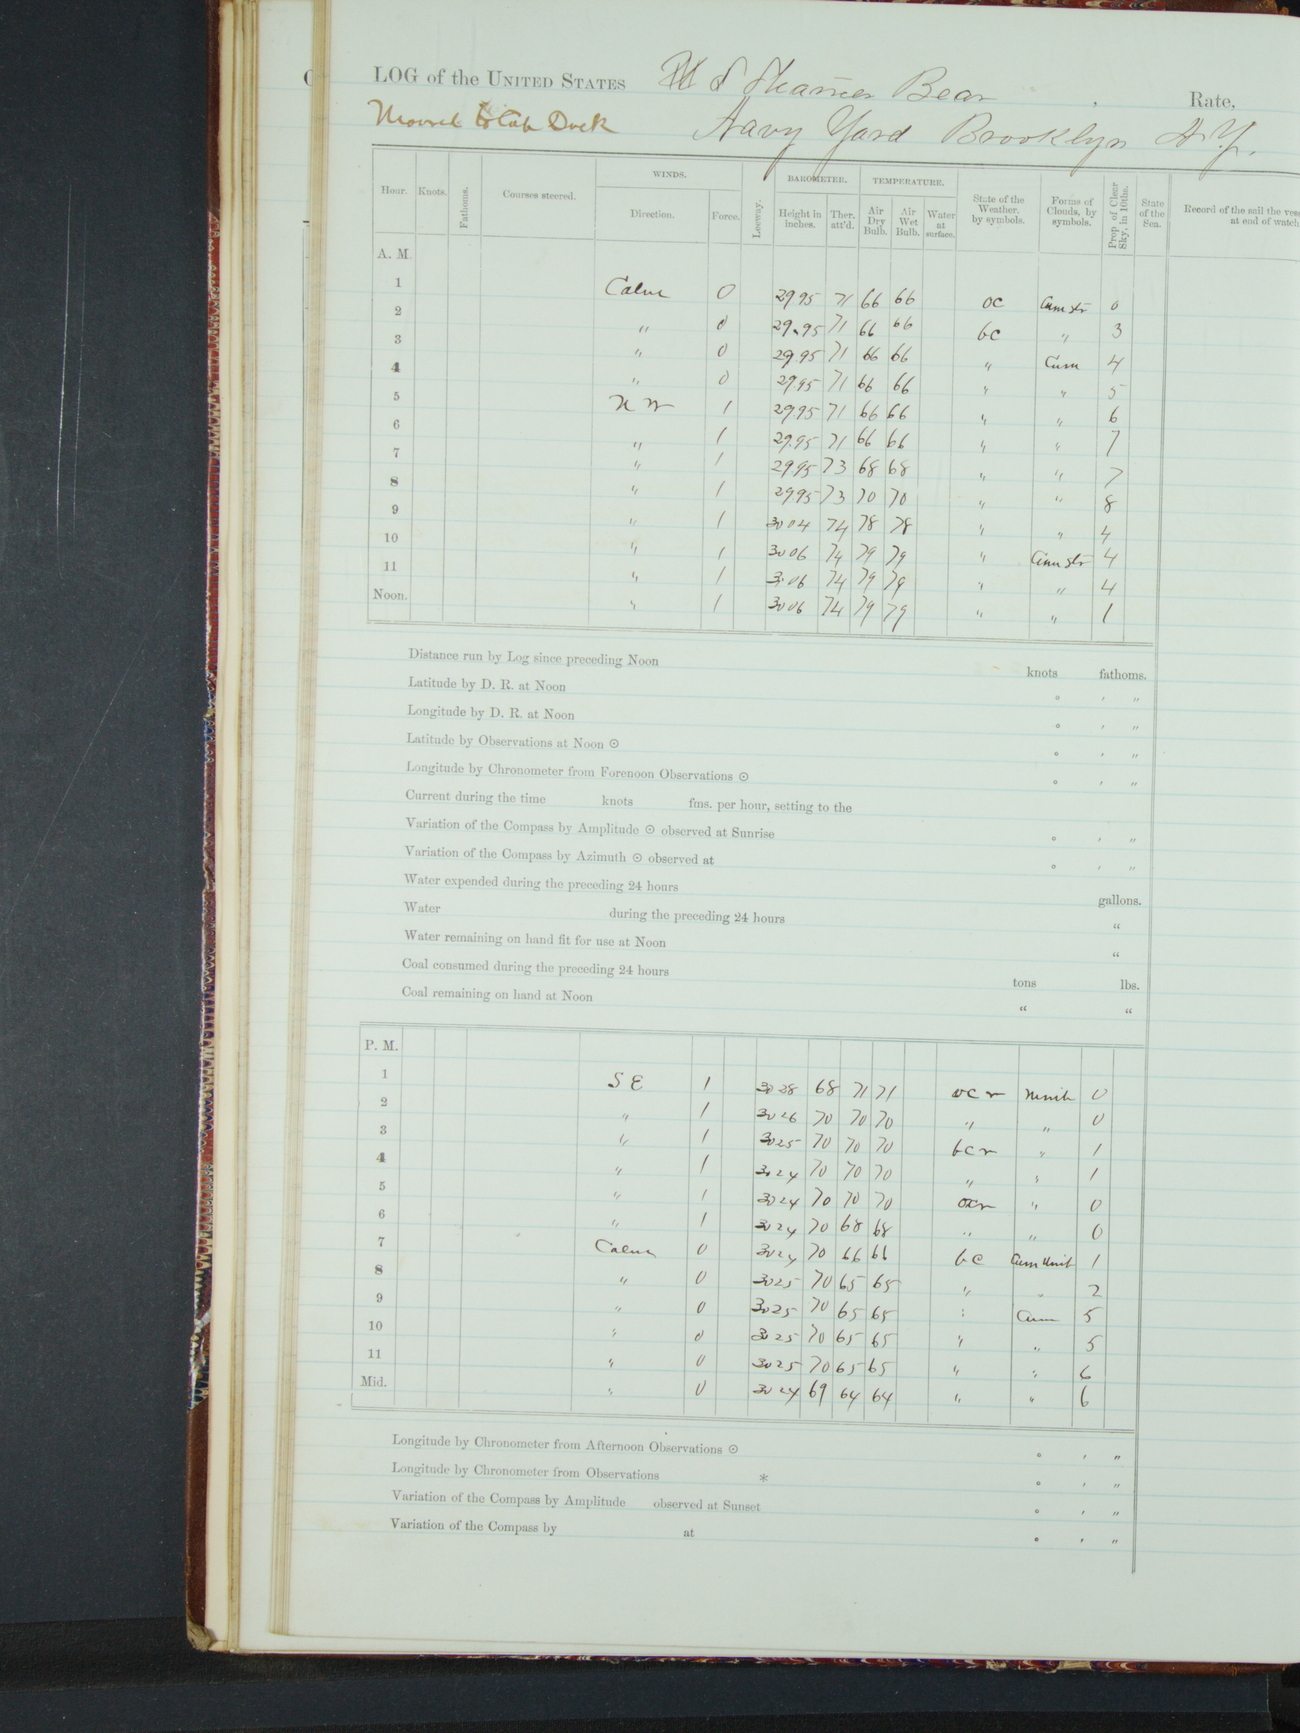 LOG of the UNITED STATES U S Steamer Bear , Rate,
Moored to Cob Dock Navy Yard Brooklyn N.Y.
WINDS. BAROMETER. TEMPERATURE.
Hour. Knots. Fathoms. Courses steered. Direction. Force. Leeway. Height in inches. Ther. att'd. Air Dry Bulb. Air Wet Bulb. Water at surface. State of the Weather, by symbols. Forms of Clouds, by symbols. Prop. of Clear Sky, in 10ths. State of the Sea. Record of the sail the
at end of watch
A. M.
1 Calm 0 29.95 71 66 66 oc Cum str 0
2 " 0 29.95 71 66 66 bc " 3
3 " 0 29.95 71 66 66 " Cum 4
4 " 0 29.95 71 66 66 " " 5
5 N W 1 29.95 71 66 66 " " 6
6 " 1 29.95 71 66 66 " " 7
7 " 1 29.95 73 68 68 " " 7
8 " 1 29.95 73 70 70 " " 8
9 " 1 30 04 74 78 78 " " 4
10 " 1 30 06 74 79 79 " Cum str 4
11 " 1 30 06 74 79 79 " " 4
Noon. " 1 30 06 74 79 79 " " 1
Distance run by Log since preceding Noon knots fathoms.
Latitude by D. R. at Noon ° ' "
Longitude by D. R. at Noon ° ' "
Latitude by Observations at Noon ⊙ ° ' "
Longitude by Chronometer from Forenoon Observations ⊙ ° ' "
Current during the time knots fms. per hour, setting to the
Variation of the Compass by Amplitude ⊙ observed at Sunrise ° ' "
Variation of the Compass by Azimuth ⊙ observed at ° ' "
Water expended during the preceding 24 hours gallons.
Water during the preceding 24 hours "
Water remaining on hand fit for use at Noon "
Coal consumed during the preceding 24 hours tons lbs.
Coal remaining on hand at Noon " "
P. M.
1 S E 1 30 28 68 71 71 oc r Nimb 0
2 " 1 30 26 70 70 70 " " 0
3 " 1 30 25 70 70 70 bc r " 1
4 " 1 30 24 70 70 70 " " 1
5 " 1 30 24 70 70 70 ocr " 0
6 " 1 30 24 70 68 68 " " 0
7 Calm 0 30 24 70 66 66 bc Cum Nimb 1
8 " 0 30 25 70 65 65 " " 2
9 " 0 30 25 70 65 65 " Cum 5
10 " 0 30 25 70 65 65 " " 5
11 " 0 30 25 70 65 65 " " 6
Mid. " 0 30 24 69 64 64 " " 6
Longitude by Chronometer from Afternoon Observations ⊙ ° ' "
Longitude by Chronometer from Observations * ° ' "
Variation of the Compass by Amplitude observed at Sunset ° ' "
Variation of the Compass by at ° ' "